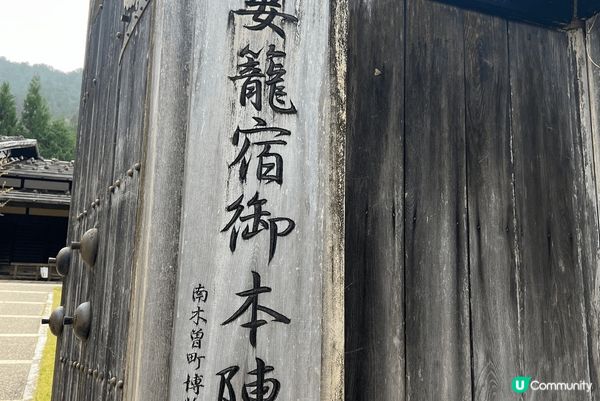 妻籠宿御本陣
南木曽町博
U Community